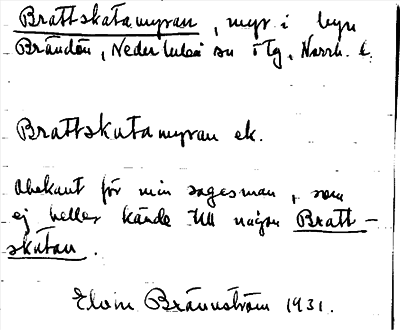 Brattskatamyran, myr i byn
Brändön, Nederluleå sn o tg, Norrb. l.
Brattskatamyran ek.
Obekant för min sagesman, som
ej heller kände till någon Bratt-
skatan.
Elvin Brännström 1931.